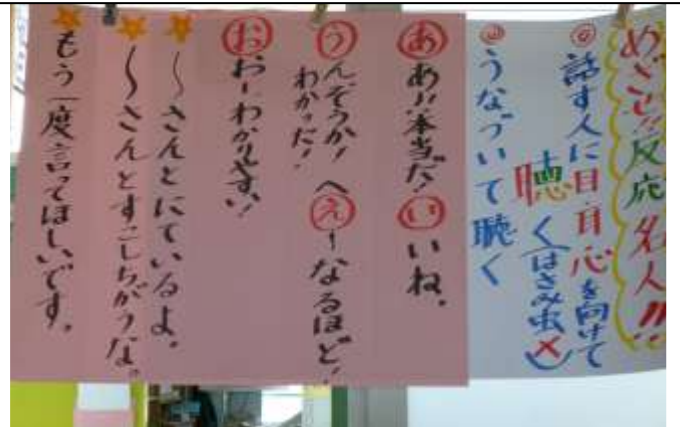 めざせ!!反応名人!!
◎話す人に目・耳・心を向けて
聴く(はさみ虫×)
◎うなづいて聴く
あ あ!!本当だ! い いね。
う んそうか! へ え ーなるほど!
わかった!
お おーわかりやすい!
★〜さんとにているよ。
★〜さんとすこしちがうな。
★もう一度言ってほしいです。